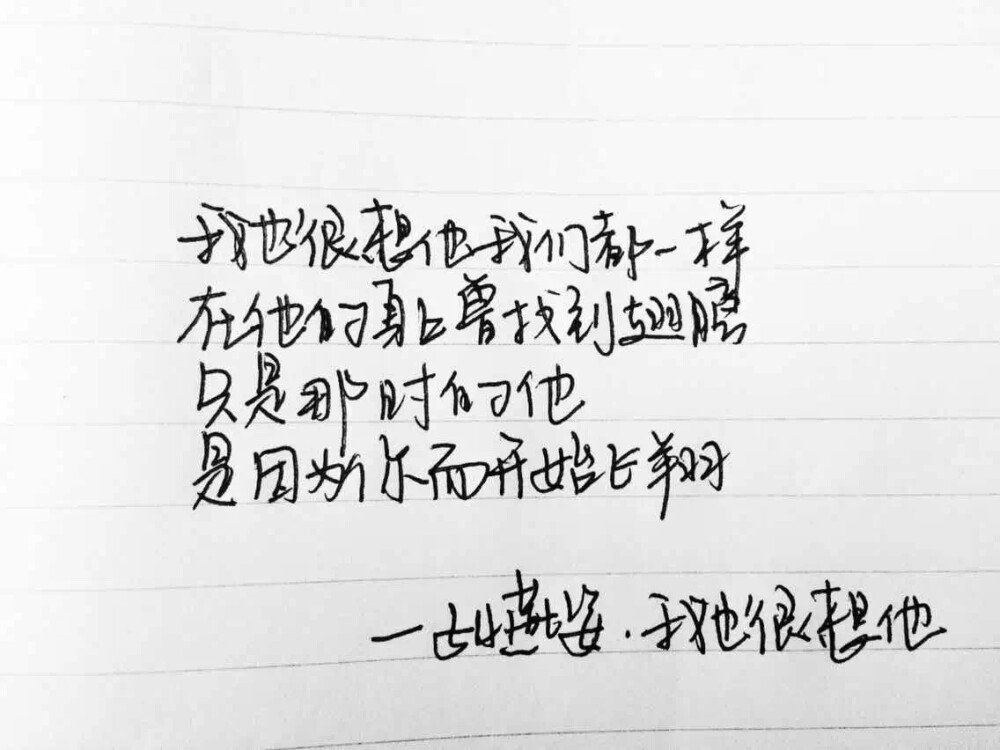 我也很想他我们都一样
在他的身上曾找到翅膀
只是那时的他
是因为你而开始飞翔
—孙燕姿.我也很想他